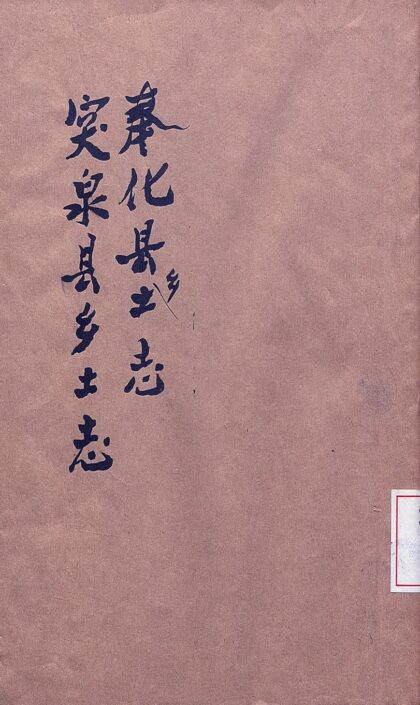 奉化县乡土志
突泉县乡土志